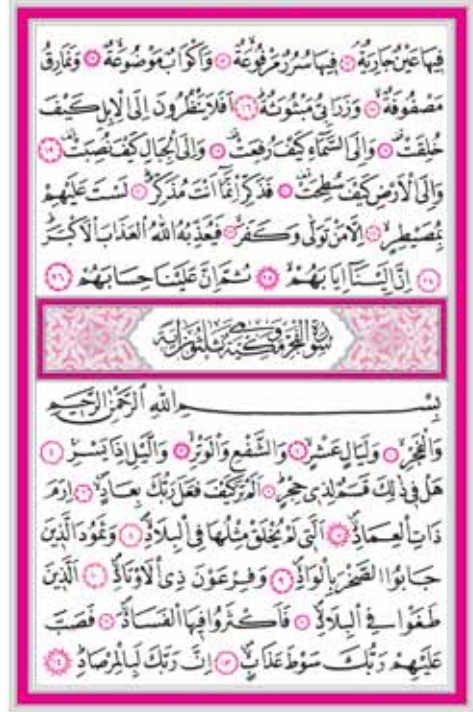 فِيهَا عَيْنٌ جَارِيَةٌۘ ﴿١٢﴾ فِيهَا سُرُرٌ مَرْفُوعَةٌۙ ﴿١٣﴾ وَاَكْوَابٌ مَوْضُوعَةٌۙ ﴿١٤﴾ وَنَمَارِقُ
مَصْفُوفَةٌۙ ﴿١٥﴾ وَزَرَابِيُّ مَبْثُوثَةٌۜ ﴿١٦﴾ اَفَلَا يَنْظُرُونَ اِلَى الْاِبِلِ كَيْفَ
خُلِقَتْ۠ ﴿١٧﴾ وَاِلَى السَّمَٓاءِ كَيْفَ رُفِعَتْ۠ ﴿١٨﴾ وَاِلَى الْجِبَالِ كَيْفَ نُصِبَتْ۠ ﴿١٩﴾
وَاِلَى الْاَرْضِ كَيْفَ سُطِحَتْ۠ ﴿٢٠﴾ فَذَكِّرْ اِنَّمَٓا اَنْتَ مُذَكِّرٌۜ ﴿٢١﴾ لَسْتَ عَلَيْهِمْ
بِمُصَيْطِرٍۙ ﴿٢٢﴾ اِلَّا مَنْ تَوَلّٰى وَكَفَرَۙ ﴿٢٣﴾ فَيُعَذِّبُهُ اللّٰهُ الْعَذَابَ الْاَكْبَرَۜ
﴿٢٤﴾ اِنَّ اِلَيْنَٓا اِيَابَهُمْۙ ﴿٢٥﴾ ثُمَّ اِنَّ عَلَيْنَا حِسَابَهُمْ ﴿٢٦﴾
سُورَةُ الْفَجْرِ مَكِّيَّةٌ وَهِيَ ثَلٰثُونَ اٰيَةً
بِسْمِ اللّٰهِ الرَّحْمٰنِ الرَّحِيمِ
وَالْفَجْرِۙ ﴿١﴾ وَلَيَالٍ عَشْرٍۙ ﴿٢﴾ وَالشَّفْعِ وَالْوَتْرِۙ ﴿٣﴾ وَالَّيْلِ اِذَا يَسْرِۚ ﴿٤﴾
هَلْ فِي ذٰلِكَ قَسَمٌ لِذِي حِجْرٍۜ ﴿٥﴾ اَلَمْ تَرَ كَيْفَ فَعَلَ رَبُّكَ بِعَادٍۙ ﴿٦﴾ اِرَمَ
ذَاتِ الْعِمَادِۙ ﴿٧﴾ اَلَّتِي لَمْ يُخْلَقْ مِثْلُهَا فِي الْبِلَادِۙ ﴿٨﴾ وَثَمُودَ الَّذِينَ
جَابُوا الصَّخْرَ بِالْوَادِۙ ﴿٩﴾ وَفِرْعَوْنَ ذِي الْاَوْتَادِۙ ﴿١٠﴾ اَلَّذِينَ
طَغَوْا فِي الْبِلَادِۙ ﴿١١﴾ فَاَكْثَرُوا فِيهَا الْفَسَادَۙ ﴿١٢﴾ فَصَبَّ
عَلَيْهِمْ رَبُّكَ سَوْطَ عَذَابٍۚ ﴿١٣﴾ اِنَّ رَبَّكَ لَبِالْمِرْصَادِۜ ﴿١٤﴾